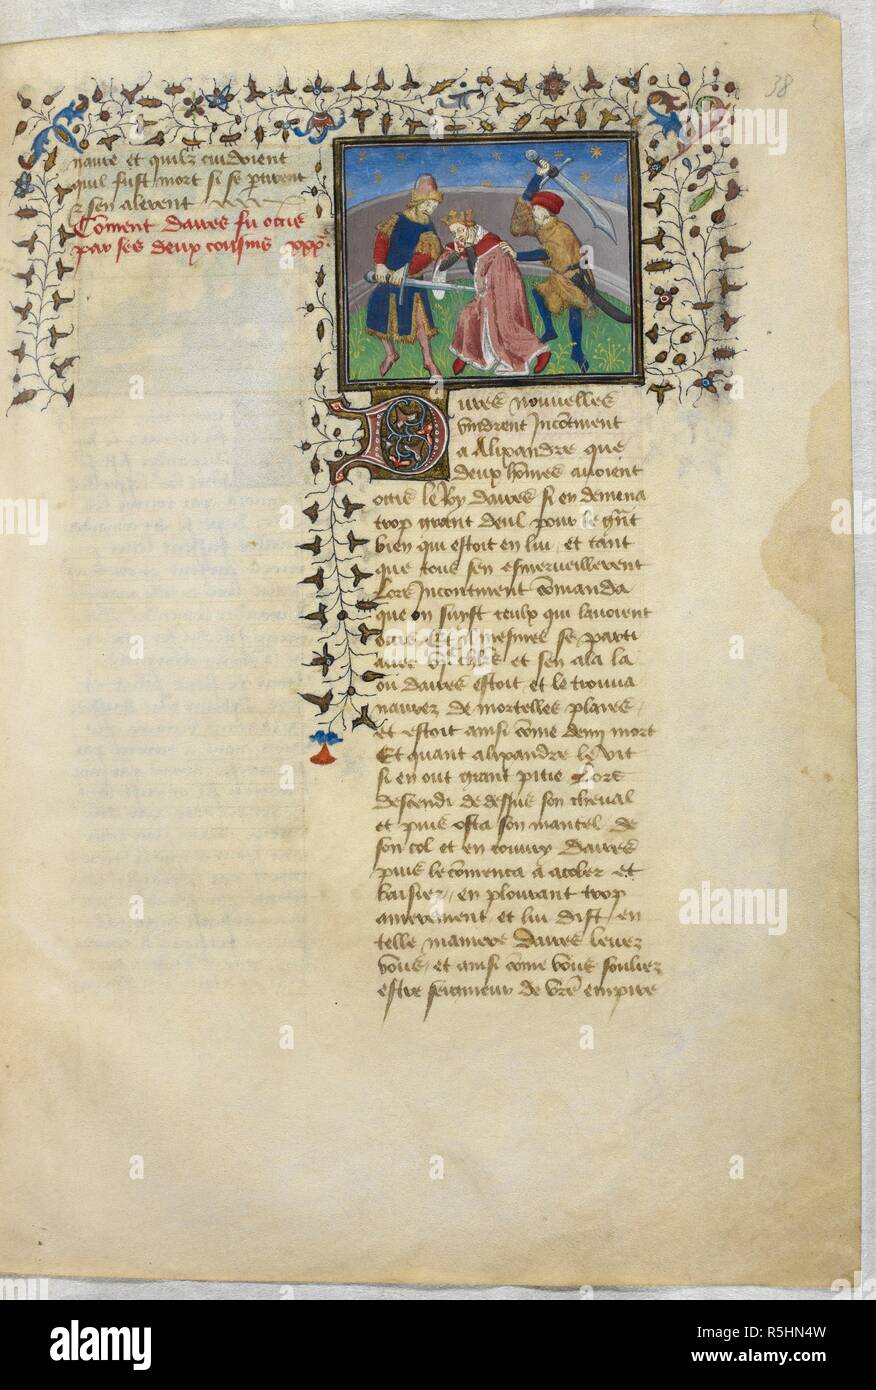 38
navre et quilz cuidoient
quil fust mort si se ptirent
& sen alerent
Cõment daires fu occis
par ses deux cousins xxxᵉ.
Dures nouvelles
vindrent Incõtment
a Alixandre que
deux hõmes avoient
occis le Roy daires si en demena
trop grant deul pour le gñt
bien qui estoit en lui et tant
que tous sen esmerveillerent
Lors Incontment cõmanda
que on suist ceulx qui lavoient
occis Et il mesmes se parti
avec et sen ala la
ou daires estoit et le trouva
navrez de mortelles plaies
et estoit ainsi cõme demy mort
Et quant alixandre le vit
si en out grant pitie Lors
descendi de dessus son cheval
et puis osta son mantel de
son col et en couvry daires
puis le cõmenca a acoler et
baisier en plourant trop
amerement et lui dist en
telle maniere Daires levez
vous et ainsi cõme vous souliez
estre seigneur de vrẽ empire
alamy
Image ID: R5HN4W
www.alamy.com